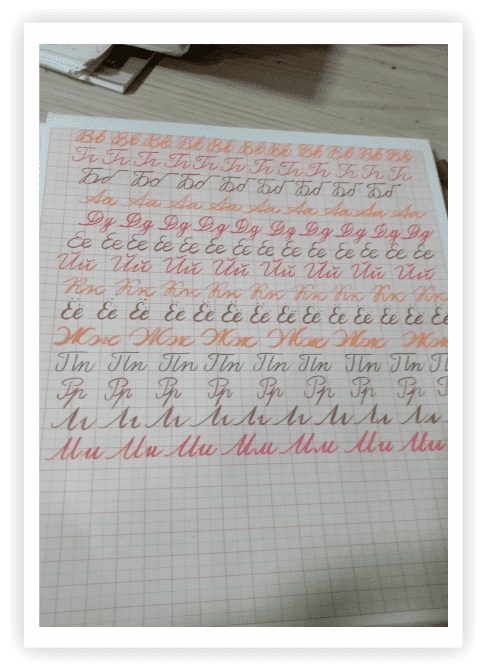 Вв Вв Вв Вв Вв Вв Вв Вв Вв Вв Вв
Гг Гг Гг Гг Гг Гг Гг Гг Гг Гг Гг Гг
Бб Бб Бб Бб Бб Бб Бб Бб
Аа Аа Аа Аа Аа Аа Аа Аа Аа
Дд Дд Дд Дд Дд Дд Дд Дд Дд Дд
Ее Ее Ее Ее Ее Ее Ее Ее Ее Ее Ее Ее Ее Ее
Йй Йй Йй Йй Йй Йй Йй Йй
Кк Кк Кк Кк Кк Кк Кк Кк Кк
Ёё Ёё Ёё Ёё Ёё Ёё Ёё Ёё Ёё Ёё Ёё Ёё Ёё Ёё
Жж Жж Жж Жж Жж Жж
Пп Пп Пп Пп Пп Пп Пп Пп Пп
Рр Рр Рр Рр Рр Рр Рр Рр
Лл Лл Лл Лл Лл Лл Лл Лл Лл
Ии Ии Ии Ии Ии Ии Ии